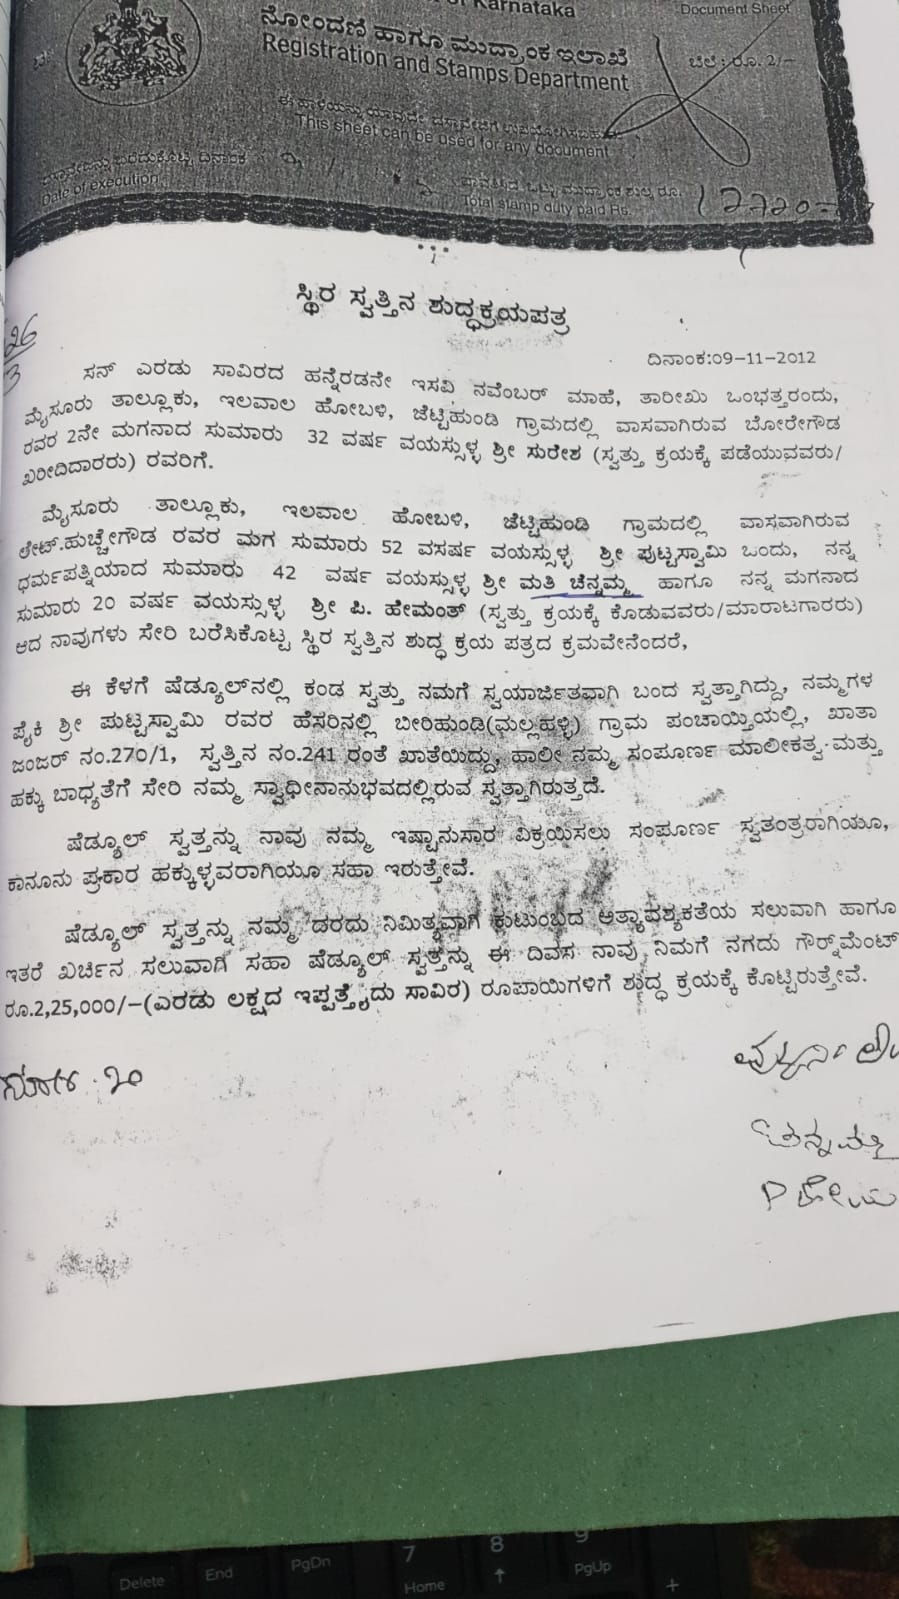 Karnataka
Document Sheet
ನೋಂದಣಿ ಹಾಗೂ ಮುದ್ರಾಂಕ ಇಲಾಖೆ
Registration and Stamps Department
ಬೆಲೆ : ರೂ. 2/-
ಈ ಹಾಳೆಯನ್ನು ಯಾವುದೇ ದಸ್ತಾವೇಜಿಗೆ ಉಪಯೋಗಿಸಬಹುದು
This sheet can be used for any document
ದಸ್ತಾವೇಜನ್ನು ಬರೆದುಕೊಟ್ಟ ದಿನಾಂಕ
Date of execution
ಪಾವತಿಸಿದ ಒಟ್ಟು ಮುದ್ರಾಂಕ ಶುಲ್ಕ ರೂ.
Total stamp duty paid Rs. 12720=
ಸ್ಥಿರ ಸ್ವತ್ತಿನ ಶುದ್ಧಕ್ರಯಪತ್ರ
26
3
ದಿನಾಂಕ:09-11-2012
ಸನ್ ಎರಡು ಸಾವಿರದ ಹನ್ನೆರಡನೇ ಇಸವಿ ನವೆಂಬರ್ ಮಾಹೆ, ತಾರೀಖು ಒಂಭತ್ತರಂದು,
ಮೈಸೂರು ತಾಲ್ಲೂಕು, ಇಲವಾಲ ಹೋಬಳಿ, ಚೆಟ್ಟಿಹುಂಡಿ ಗ್ರಾಮದಲ್ಲಿ ವಾಸವಾಗಿರುವ ಬೋರೇಗೌಡ
ರವರ 2ನೇ ಮಗನಾದ ಸುಮಾರು 32 ವರ್ಷ ವಯಸ್ಸುಳ್ಳ ಶ್ರೀ ಸುರೇಶ (ಸ್ವತ್ತು ಕ್ರಯಕ್ಕೆ ಪಡೆಯುವವರು/
ಖರೀದಿದಾರರು) ರವರಿಗೆ.
ಮೈಸೂರು ತಾಲ್ಲೂಕು, ಇಲವಾಲ ಹೋಬಳಿ, ಚೆಟ್ಟಿಹುಂಡಿ ಗ್ರಾಮದಲ್ಲಿ ವಾಸವಾಗಿರುವ
ಲೇಟ್.ಹುಚ್ಚೇಗೌಡ ರವರ ಮಗ ಸುಮಾರು 52 ವಸರ್ಷ ವಯಸ್ಸುಳ್ಳ ಶ್ರೀ ಪುಟ್ಟಸ್ವಾಮಿ ಒಂದು, ನನ್ನ
ಧರ್ಮಪತ್ನಿಯಾದ ಸುಮಾರು 42 ವರ್ಷ ವಯಸ್ಸುಳ್ಳ ಶ್ರೀ ಮತಿ ಚೆನ್ನಮ್ಮ ಹಾಗೂ ನನ್ನ ಮಗನಾದ
ಸುಮಾರು 20 ವರ್ಷ ವಯಸ್ಸುಳ್ಳ ಶ್ರೀ ಪಿ. ಹೇಮಂತ್ (ಸ್ವತ್ತು ಕ್ರಯಕ್ಕೆ ಕೊಡುವವರು/ಮಾರಾಟಗಾರರು)
ಆದ ನಾವುಗಳು ಸೇರಿ ಬರೆಸಿಕೊಟ್ಟ ಸ್ಥಿರ ಸ್ವತ್ತಿನ ಶುದ್ಧ ಕ್ರಯ ಪತ್ರದ ಕ್ರಮವೇನೆಂದರೆ,
ಈ ಕೆಳಗೆ ಷೆಡ್ಯೂಲ್‌ನಲ್ಲಿ ಕಂಡ ಸ್ವತ್ತು ನಮಗೆ ಸ್ವಯಾರ್ಜಿತವಾಗಿ ಬಂದ ಸ್ವತ್ತಾಗಿದ್ದು, ನಮ್ಮಗಳ
ಪೈಕಿ ಶ್ರೀ ಪುಟ್ಟಸ್ವಾಮಿ ರವರ ಹೆಸರಿನಲ್ಲಿ ಬೀರಿಹುಂಡಿ(ಮಲ್ಲಹಳ್ಳಿ) ಗ್ರಾಮ ಪಂಚಾಯ್ತಿಯಲ್ಲಿ, ಖಾತಾ
ಜಂಜರ್ ನಂ.270/1, ಸ್ವತ್ತಿನ ನಂ.241 ರಂತೆ ಖಾತೆಯಿದ್ದು, ಹಾಲೀ ನಮ್ಮ ಸಂಪೂರ್ಣ ಮಾಲೀಕತ್ವ ಮತ್ತು
ಹಕ್ಕು ಬಾಧ್ಯತೆಗೆ ಸೇರಿ ನಮ್ಮ ಸ್ವಾಧೀನಾನುಭವದಲ್ಲಿರುವ ಸ್ವತ್ತಾಗಿರುತ್ತದೆ.
ಷೆಡ್ಯೂಲ್ ಸ್ವತ್ತನ್ನು ನಾವು ನಮ್ಮ ಇಷ್ಟಾನುಸಾರ ವಿಕ್ರಯಿಸಲು ಸಂಪೂರ್ಣ ಸ್ವತಂತ್ರರಾಗಿಯೂ,
ಕಾನೂನು ಪ್ರಕಾರ ಹಕ್ಕುಳ್ಳವರಾಗಿಯೂ ಸಹಾ ಇರುತ್ತೇವೆ.
ಷೆಡ್ಯೂಲ್ ಸ್ವತ್ತನ್ನು ನಮ್ಮ ದರದು ನಿಮಿತ್ಯವಾಗಿ ಕುಟುಂಬದ ಅತ್ಯಾವಶ್ಯಕತೆಯ ಸಲುವಾಗಿ ಹಾಗೂ
ಇತರೆ ಖರ್ಚಿನ ಸಲುವಾಗಿ ಸಹಾ ಷೆಡ್ಯೂಲ್ ಸ್ವತ್ತನ್ನು ಈ ದಿವಸ ನಾವು ನಿಮಗೆ ನಗದು ಗೌರ್ನ್‌ಮೆಂಟ್
ರೂ.2,25,000/-(ಎರಡು ಲಕ್ಷದ ಇಪ್ಪತ್ತೈದು ಸಾವಿರ) ರೂಪಾಯಿಗಳಿಗೆ ಶುದ್ಧ ಕ್ರಯಕ್ಕೆ ಕೊಟ್ಟಿರುತ್ತೇವೆ.
ಚೆನ್ನಮ್ಮ
P ಹೇಮ
Delete
End
PgDn
7
Home
8
↑
9
PgUp
+